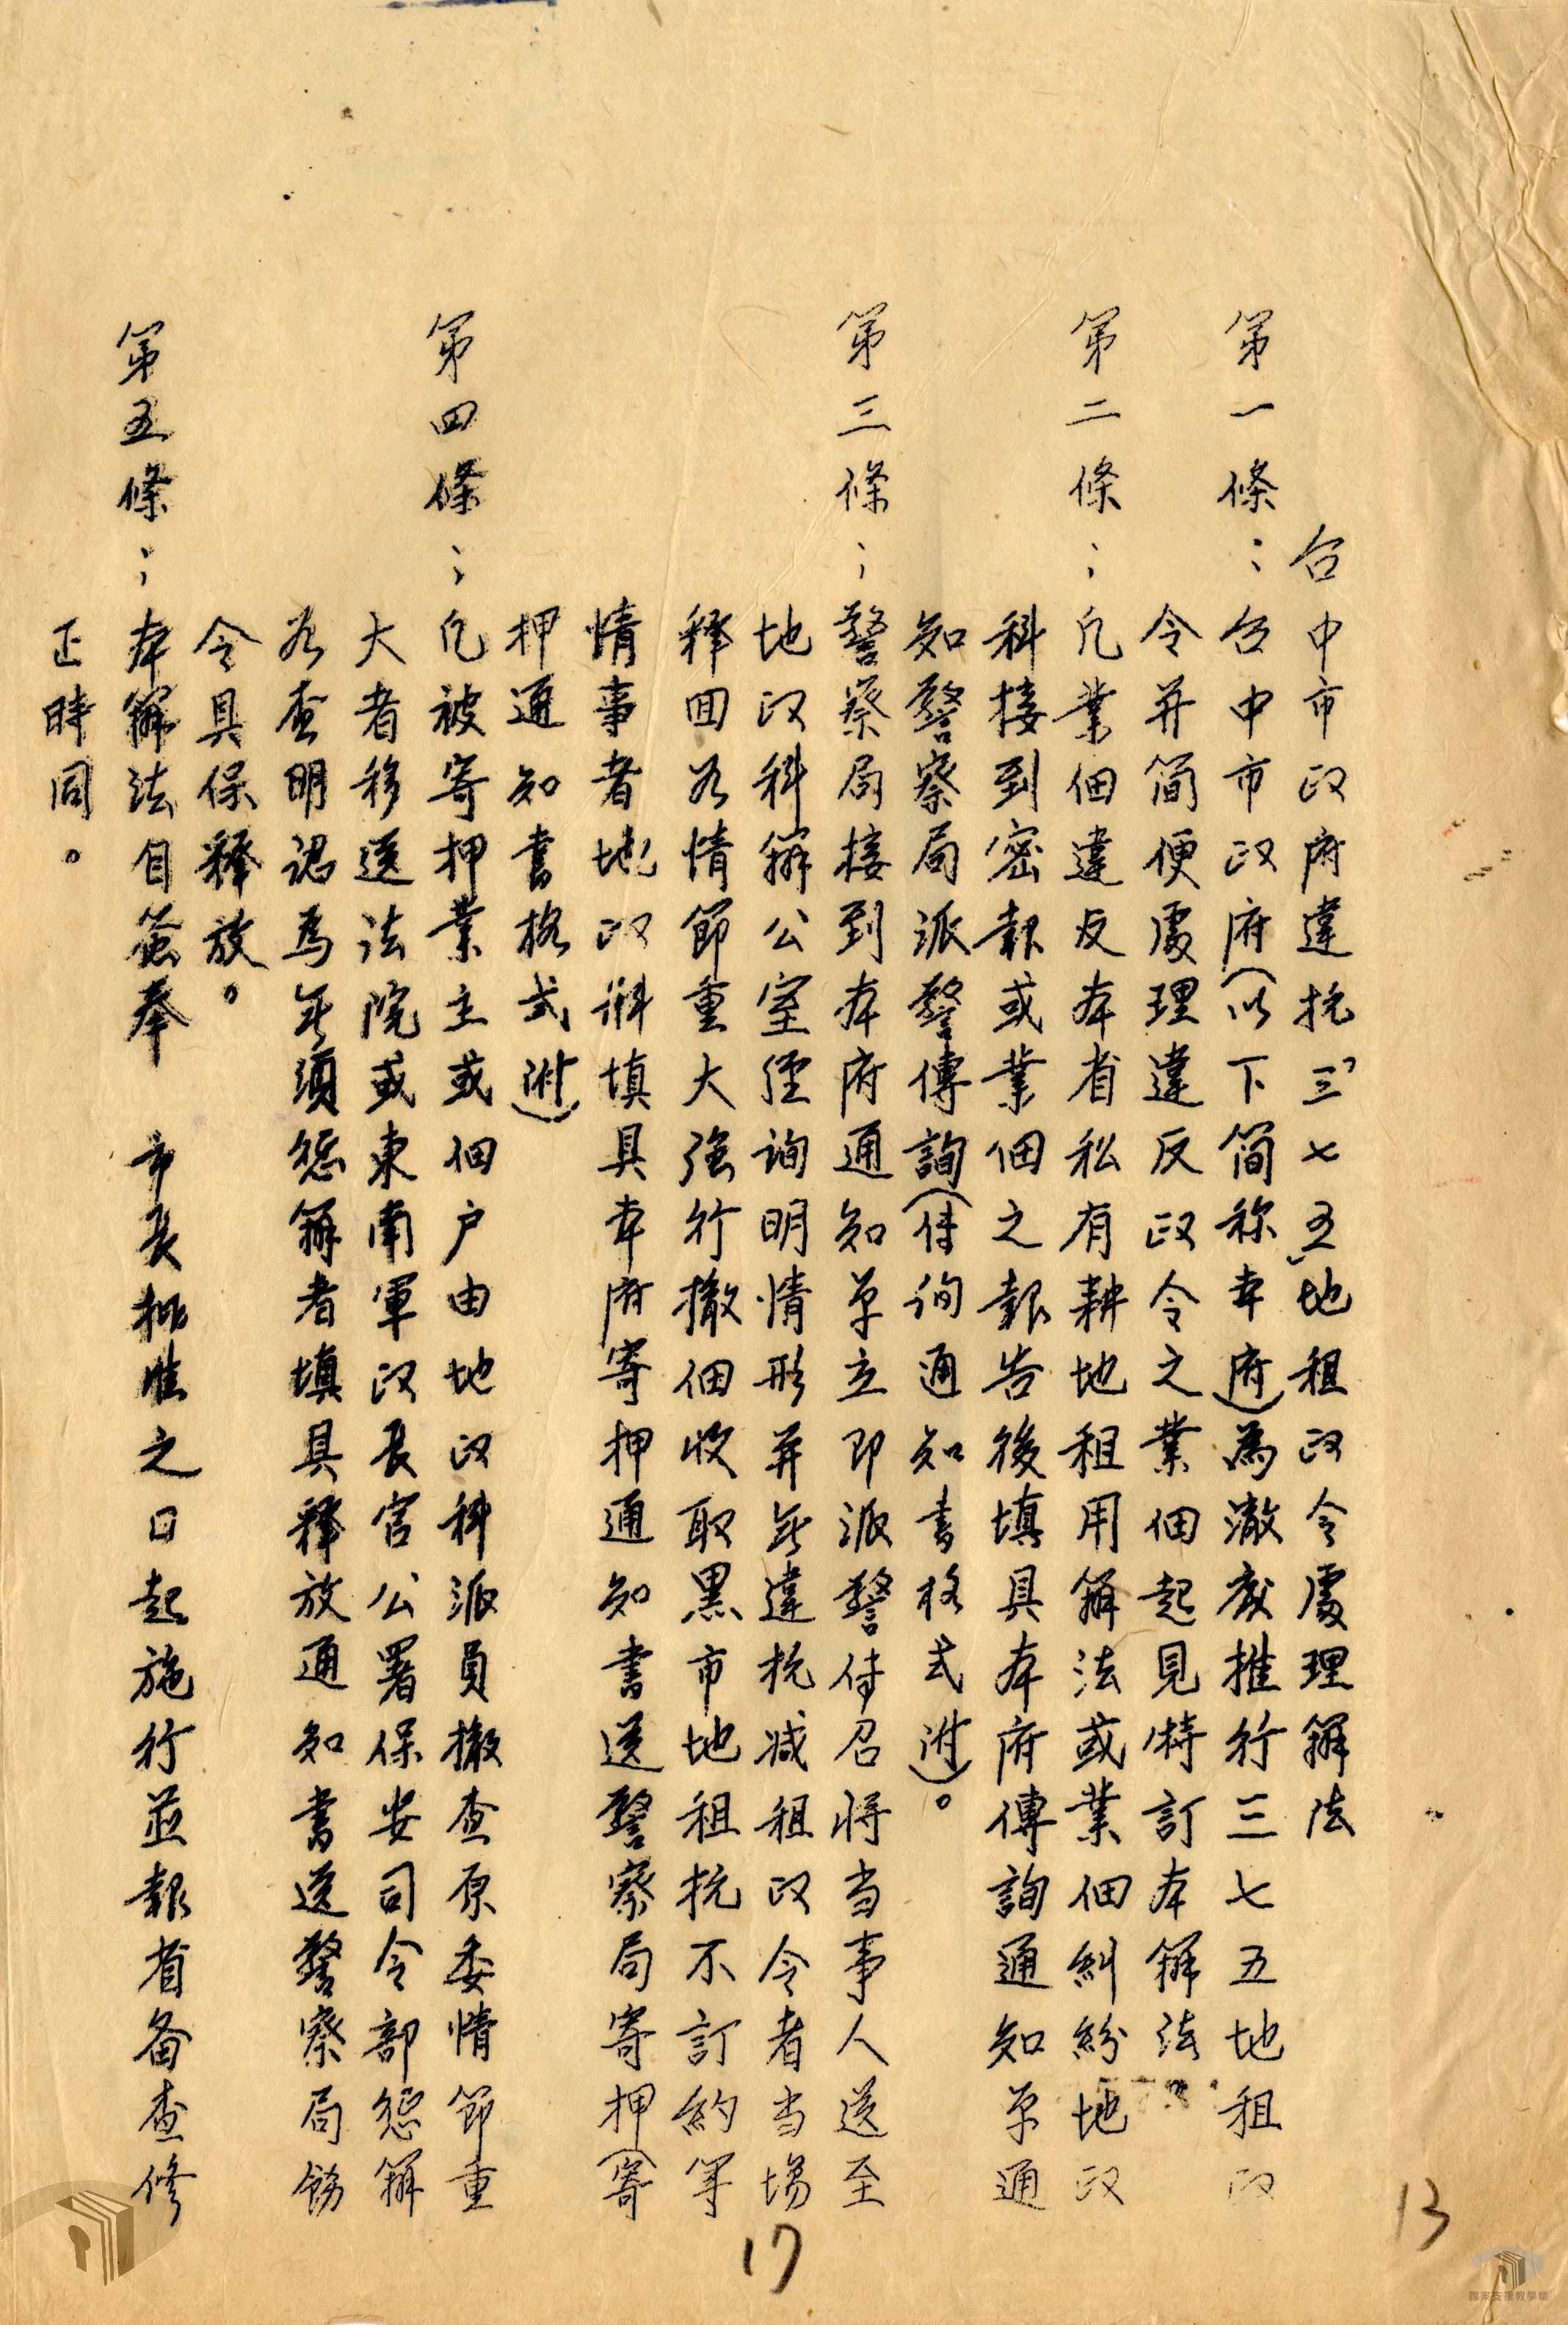 台中市政府違抗「三七五」地租政令處理辦法
第一條:台中市政府(以下簡称本府)為澈底推行三七五地租政
令并简便處理違反政令之業佃起見特訂本辦法
第二條;凡業佃違反本省私有耕地租用辦法或業佃糾紛地政
科接到密報或業佃之報告後填具本府傳詢通知单通
知警察局派警傳詢(传询通知書格式附)。
第三條;警察局接到本府通知单立即派警传召将当事人送至
地政科辦公室侄询明情形并無違抗减租政令者当場
释回若情節重大强行撤佃收取黑市地租抗不訂約等
情事者地政科填具本府寄押通知書送警察局寄押(寄
押通知書格式附)
第四條;凡被寄押業主或佃户由地政科派員撤查原委情節重
大者移送法院或東南軍政長官公署保安司令部惩辦
若查明認為無須惩辦者填具释放通知書送警察局飭
令具保释放。
第五條;本辦法自簽奉 市長批准之日起施行並報省备查修
正時同。
17
13
檔案支援教學網